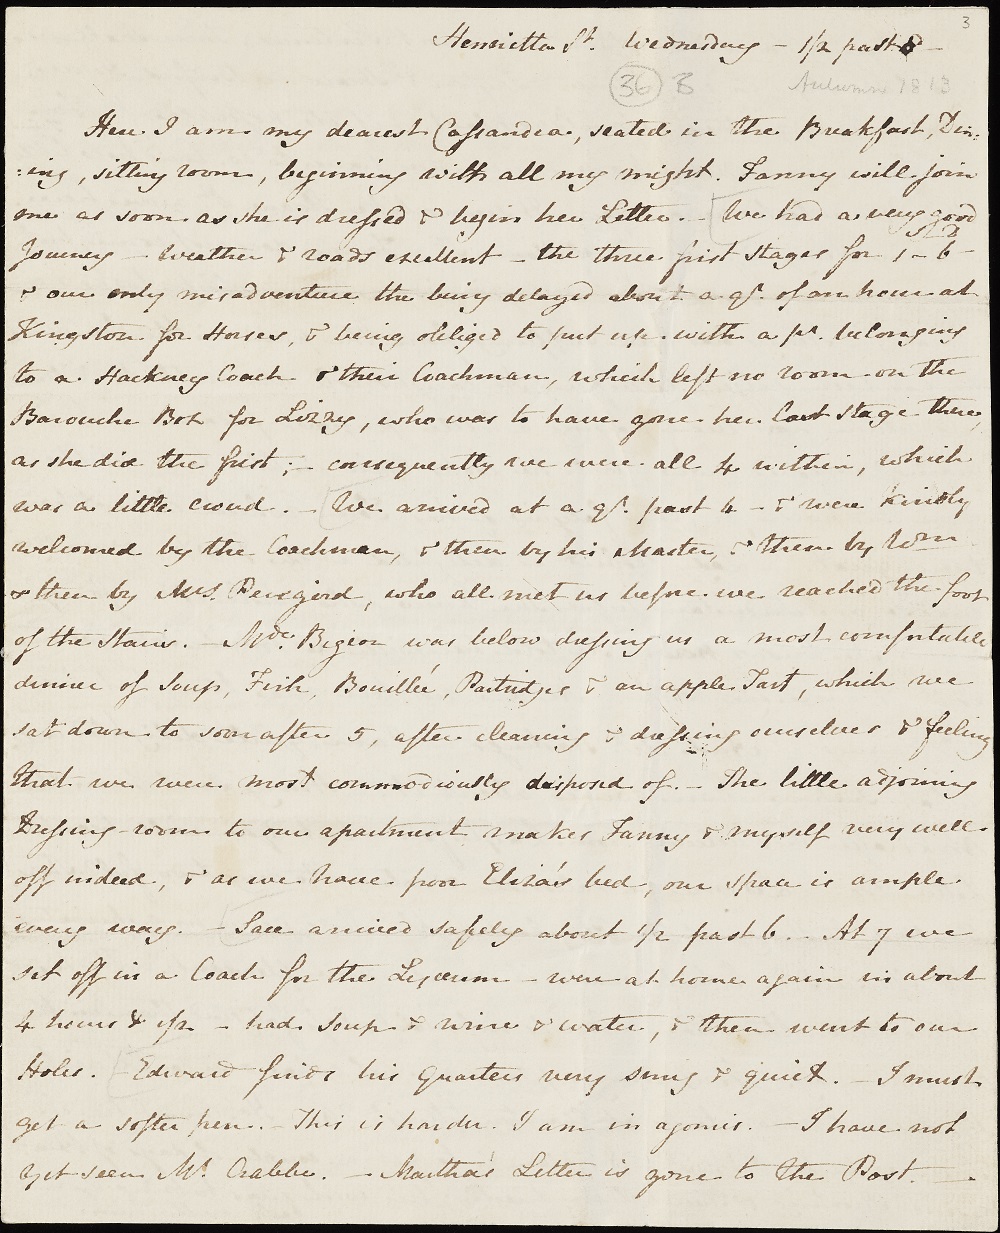 3
Henrietta St. Wednesday - 1/2 past 8 -
36 B Autumn 1813
Here I am my dearest Cassandra, seated in the Breakfast, Din:
:ing, sitting room, beginning with all my might. Fanny will join
me as soon as she is dressed & begin her Letter. - We had a very good
Journey - Weather & roads excellent - the three first stages for 1s - 6d -
& our only misadventure the being delayed about a qr. of an hour at
Kingston for Horses, & being obliged to put up with a pr. belonging
to a Hackney Coach & their Coachman, which left no room on the
Barouche Box for Lizzy, who was to have gone her last stage there,
as she did the first; - consequently we were all 4 within, which
was a little crowd. - We arrived at a qr. past 4 - & were kindly
welcomed by the Coachman, & then by his Master, & then by Wm
& then by Mrs. Perigord, who all met us before we reached the foot
of the Stairs. - Mde. Bigeon was below dressing us a most comfortable
dinner of Soup, Fish, Bouillée, Partridges & an apple Tart, which we
sat down to soon after 5, after cleaning & dressing ourselves & feeling
that we were most commodiously disposed of. - The little adjoining
Dressing-room to our apartment makes Fanny & myself very well
off indeed, & as we have poor Eliza's bed, our space is ample
every way. - Sace arrived safely about 1/2 past 6. - At 7 we
set off in a Coach for the Lyceum - were at home again in about
4 hours & 1/2 - had Soup & wine & water, & then went to our
Holes. Edward finds his Quarters very snug & quiet. - I must
get a softer pen. - This is harder. I am in agonies. - I have not
yet seen Mr. Crabbe. - Martha's Letter is gone to the Post. -